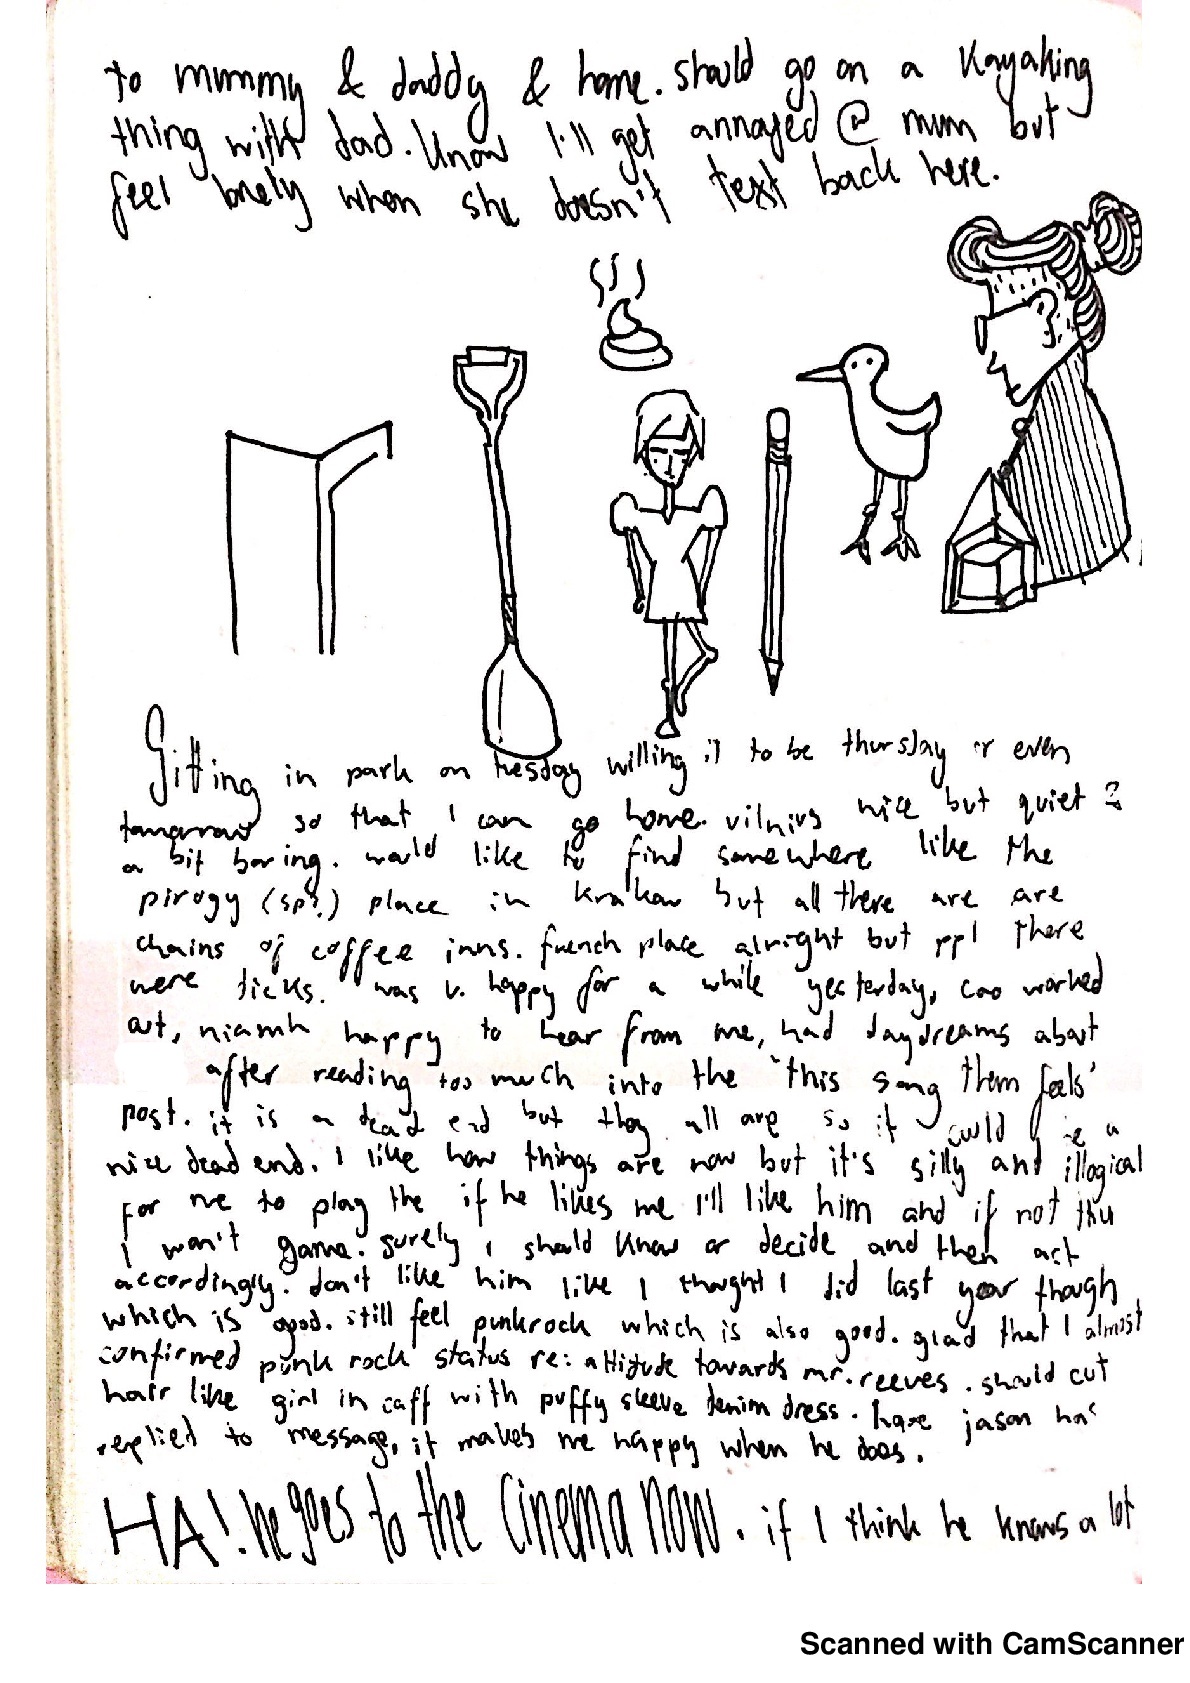 to mummy & daddy & home. should go on a kayaking
thing with dad. know I'll get annoyed @ mum but
feel lonely when she doesn't text back here.
Sitting in park on tuesday willing it to be thursday or even
tomorrow so that I can go home. vilnius nice but quiet &
a bit boring. would like to find somewhere like the
pirogy (sp?.) place in krakow but all there are are
chains of coffee inns. french place alright but ppl there
were dicks. was v. happy for a while yesterday, coo worked
out, niamh happy to hear from me, had daydreams about
after reading too much into the "this song them feels'
post. it is a dead end but they all are so it could be a
nice dead end. I like how things are now but it's silly and illogical
for me to play the if he likes me I'll like him and if not thu
I won't game. surely i should know or decide and then act
accordingly. don't like him like I thought I did last year though
which is good. still feel punkrock which is also good. glad that I almost
confirmed punk rock status re: attitude towards mr. reeves. should cut
hair like girl in caff with puffy sleeve denim dress. hope jason has
replied to message, it makes me happy when he does.
HA! he goes to the cinema now. if I think he knows a lot
Scanned with CamScanner